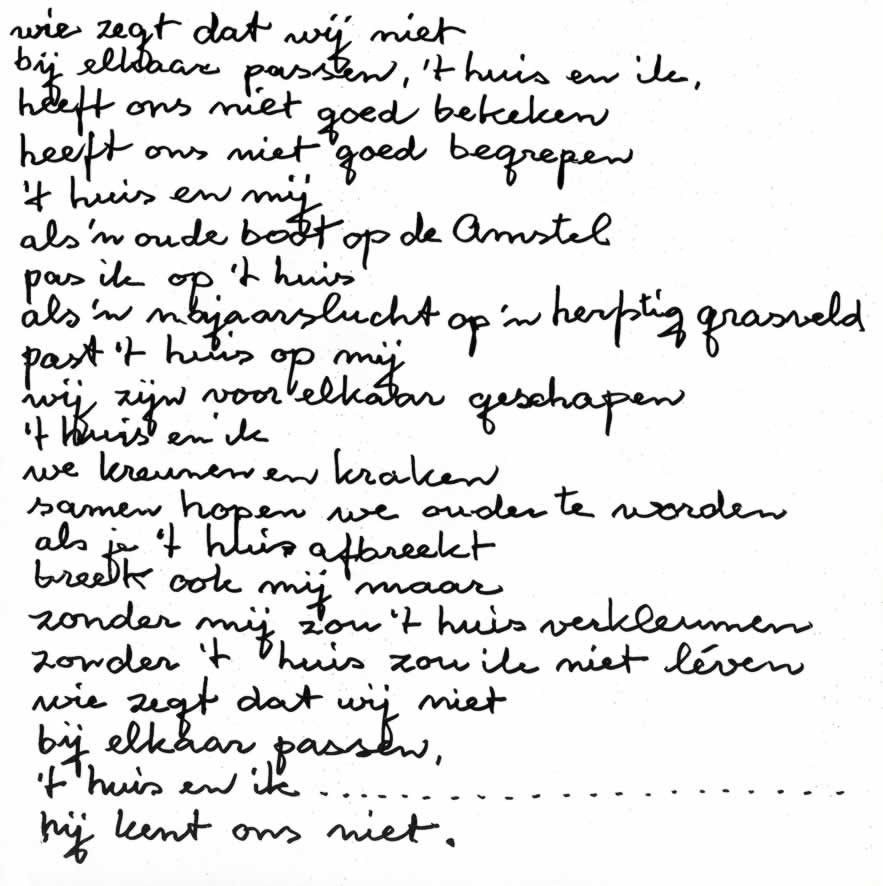 wie zegt dat wij niet
bij elkaar passen, 't huis en ik,
heeft ons niet goed bekeken
heeft ons niet goed begrepen
't huis en mij
als 'n oude boot op de Amstel
pas ik op 't huis
als 'n najaarslucht op 'n herfstig grasveld
past 't huis op mij
wij zijn voor elkaar geschapen
't huis en ik
we kreunen en kraken
samen hopen we ouder te worden
als je 't huis afbreekt
breek ook mij maar
zonder mij zou 't huis verkleumen
zonder 't huis zou ik niet léven
wie zegt dat wij niet
bij elkaar passen,
't huis en ik ..............................
hij kent ons niet.